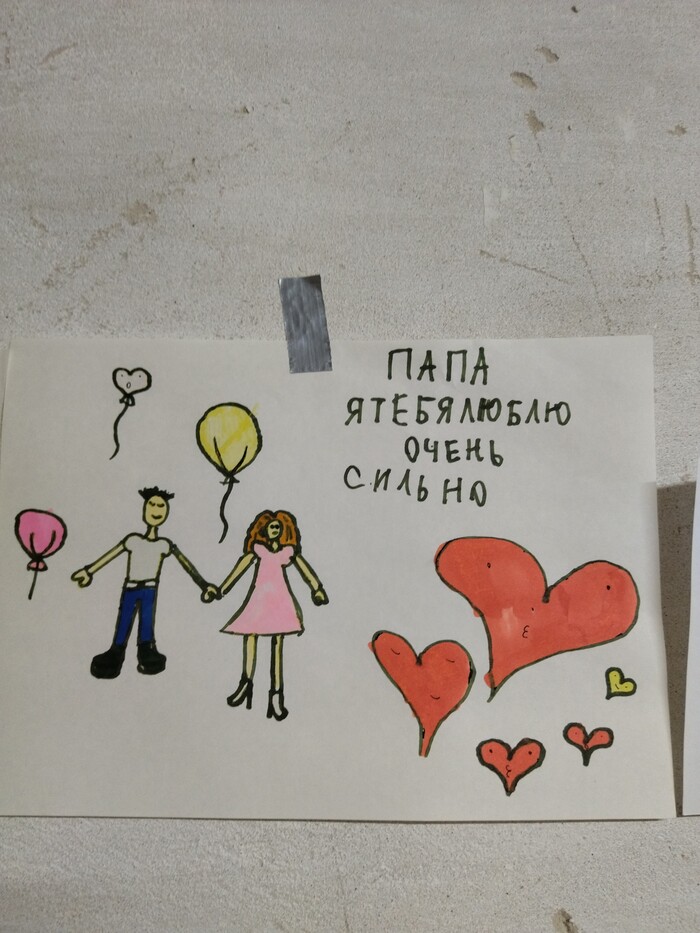 ПАПА
ЯТЕБЯЛЮБЛЮ
ОЧЕНЬ
СИЛЬНО